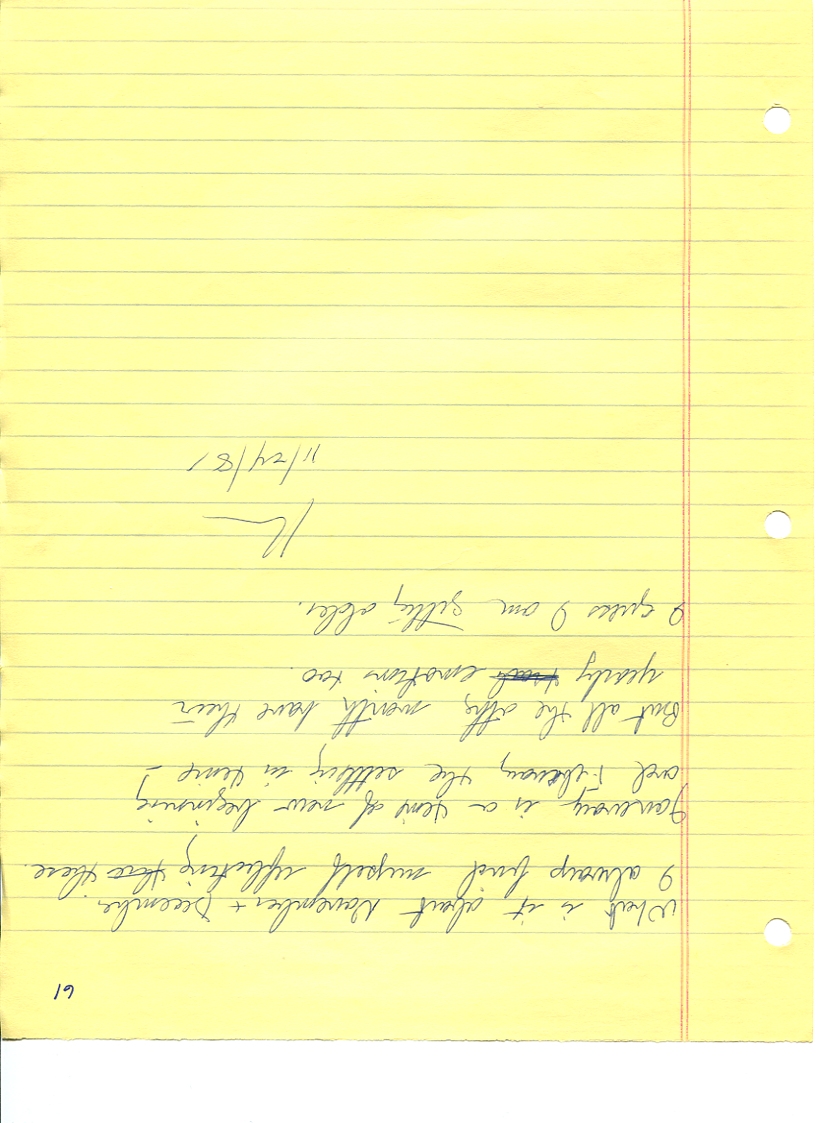 19
What is it about November + December.
I always find myself reflecting the there.
January is a time of new beginning
and February the settling in time -
But all the othe month have their
yearly emotions too.
I guess I am getting older.
11/24/81